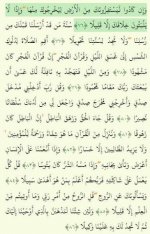 وَإِن كَادُوا لَيَسْتَفِزُّونَكَ مِنَ الْأَرْضِ لِيُخْرِجُوكَ مِنْهَا وَإِذًا لَّا
يَلْبَثُونَ خِلَافَكَ إِلَّا قَلِيلًا ﴿٧٦﴾ سُنَّةَ مَن قَدْ أَرْسَلْنَا قَبْلَكَ مِن
رُّسُلِنَا وَلَا تَجِدُ لِسُنَّتِنَا تَحْوِيلًا ﴿٧٧﴾ أَقِمِ الصَّلَاةَ لِدُلُوكِ
الشَّمْسِ إِلَىٰ غَسَقِ اللَّيْلِ وَقُرْآنَ الْفَجْرِ إِنَّ قُرْآنَ الْفَجْرِ كَانَ
مَشْهُودًا ﴿٧٨﴾ وَمِنَ اللَّيْلِ فَتَهَجَّدْ بِهِ نَافِلَةً لَّكَ عَسَىٰ أَن
يَبْعَثَكَ رَبُّكَ مَقَامًا مَّحْمُودًا ﴿٧٩﴾ وَقُل رَّبِّ أَدْخِلْنِي مُدْخَلَ
صِدْقٍ وَأَخْرِجْنِي مُخْرَجَ صِدْقٍ وَاجْعَل لِّي مِن لَّدُنكَ سُلْطَانًا
نَّصِيرًا ﴿٨٠﴾ وَقُلْ جَاءَ الْحَقُّ وَزَهَقَ الْبَاطِلُ إِنَّ الْبَاطِلَ كَانَ
زَهُوقًا ﴿٨١﴾ وَنُنَزِّلُ مِنَ الْقُرْآنِ مَا هُوَ شِفَاءٌ وَرَحْمَةٌ لِّلْمُؤْمِنِينَ
وَلَا يَزِيدُ الظَّالِمِينَ إِلَّا خَسَارًا ﴿٨٢﴾ وَإِذَا أَنْعَمْنَا عَلَى الْإِنسَانِ
أَعْرَضَ وَنَأَىٰ بِجَانِبِهِ وَإِذَا مَسَّهُ الشَّرُّ كَانَ يَئُوسًا ﴿٨٣﴾ قُلْ كُلٌّ
يَعْمَلُ عَلَىٰ شَاكِلَتِهِ فَرَبُّكُمْ أَعْلَمُ بِمَنْ هُوَ أَهْدَىٰ سَبِيلًا ﴿٨٤﴾
وَيَسْأَلُونَكَ عَنِ الرُّوحِ قُلِ الرُّوحُ مِنْ أَمْرِ رَبِّي وَمَا أُوتِيتُم مِّنَ
الْعِلْمِ إِلَّا قَلِيلًا ﴿٨٥﴾ وَلَئِن شِئْنَا لَنَذْهَبَنَّ بِالَّذِي أَوْحَيْنَا إِلَيْكَ
ثُمَّ لَا تَجِدُ لَكَ بِهِ عَلَيْنَا وَكِيلًا ﴿٨٦﴾